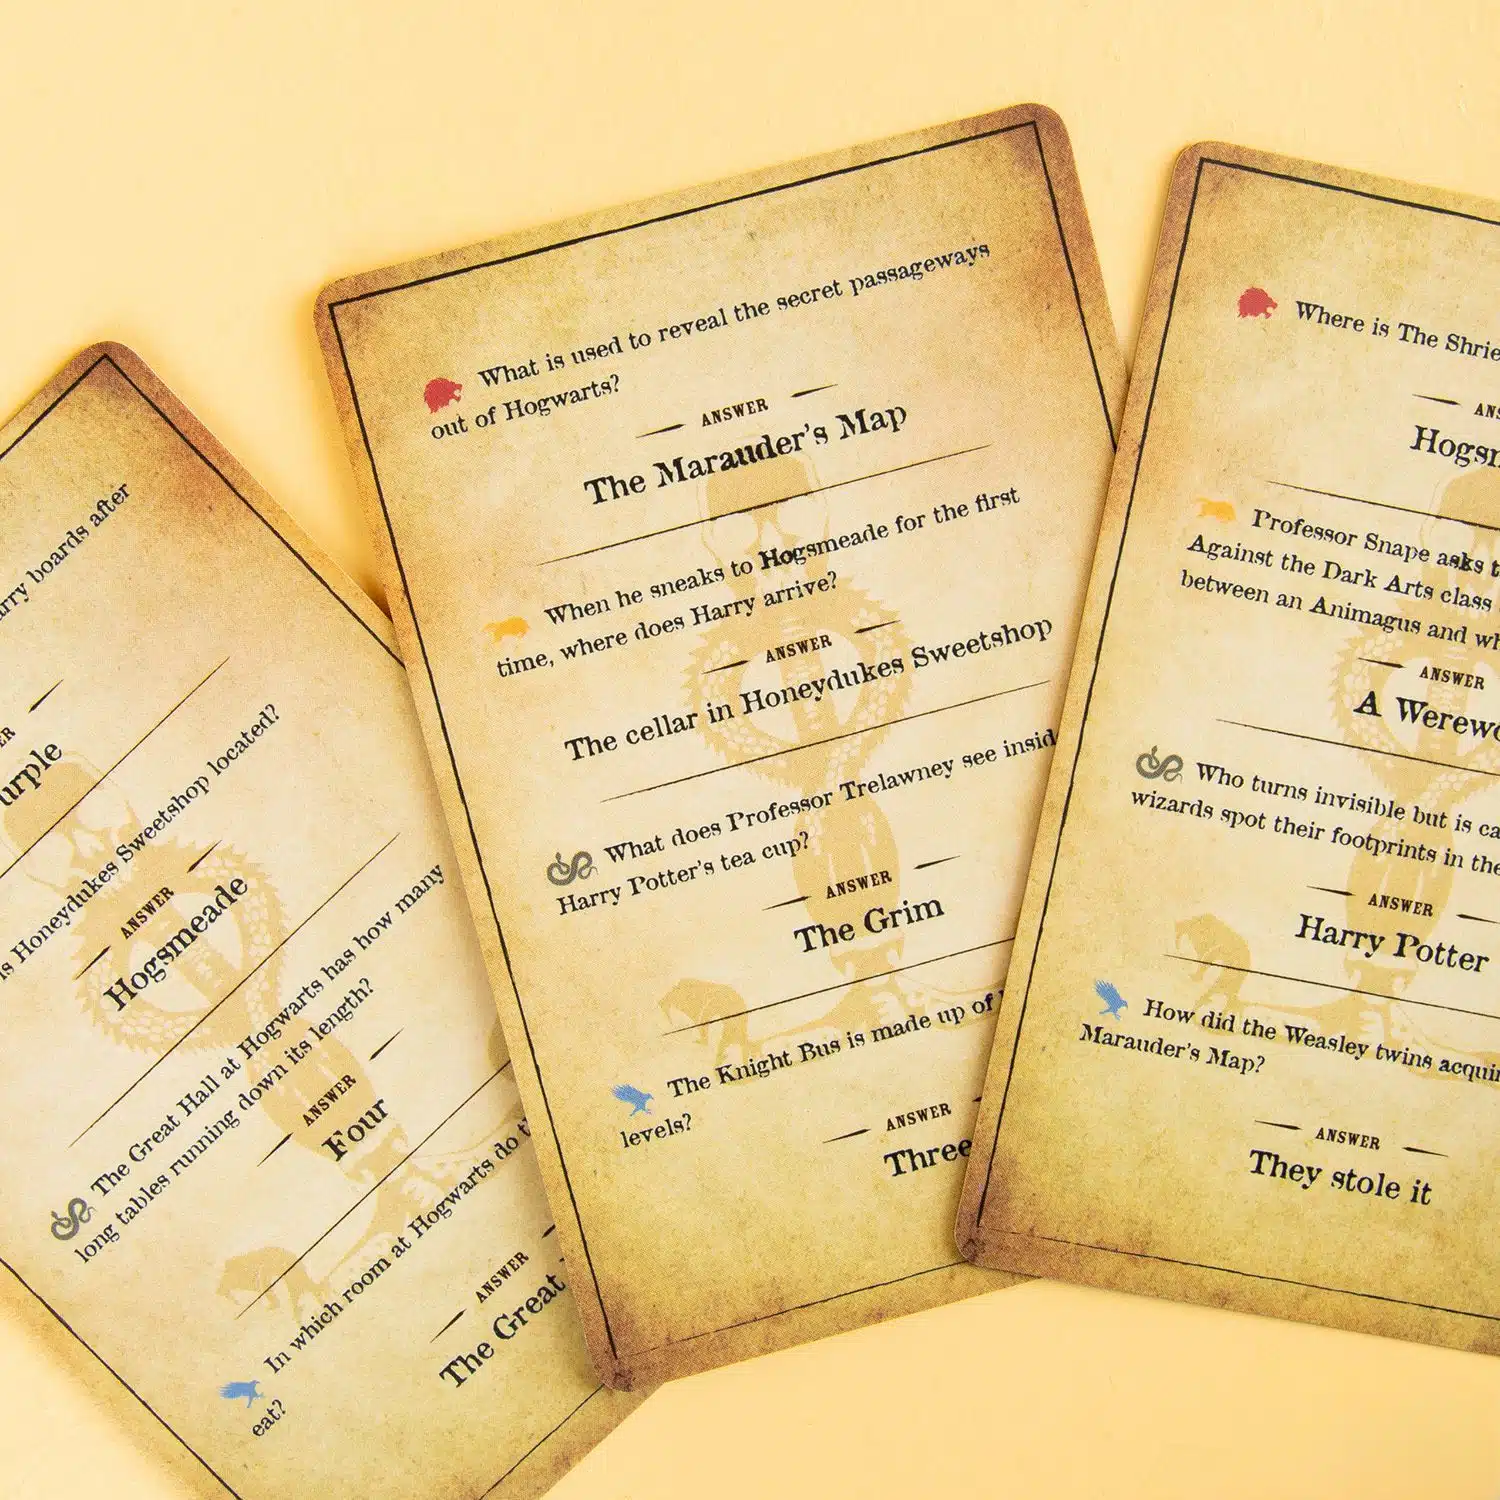 arry boards after
urple
is Honeydukes Sweetshop located?
ANSWER
Hogsmeade
The Great Hall at Hogwarts has how many
long tables running down its length?
ANSWER
Four
In which room at Hogwarts do
eat?
ANSWER
The Great
What is used to reveal the secret passageways
out of Hogwarts?
ANSWER
The Marauder's Map
When he sneaks to Hogsmeade for the first
time, where does Harry arrive?
ANSWER
The cellar in Honeydukes Sweetshop
What does Professor Trelawney see insid
Harry Potter's tea cup?
ANSWER
The Grim
The Knight Bus is made up of
levels?
ANSWER
Three
Where is The Shrie
ANS
Hogsm
Professor Snape asks t
Against the Dark Arts class
between an Animagus and wh
ANSWER
A Werewo
Who turns invisible but is ca
wizards spot their footprints in the
ANSWER
Harry Potter
How did the Weasley twins acqui
Marauder's Map?
ANSWER
They stole it